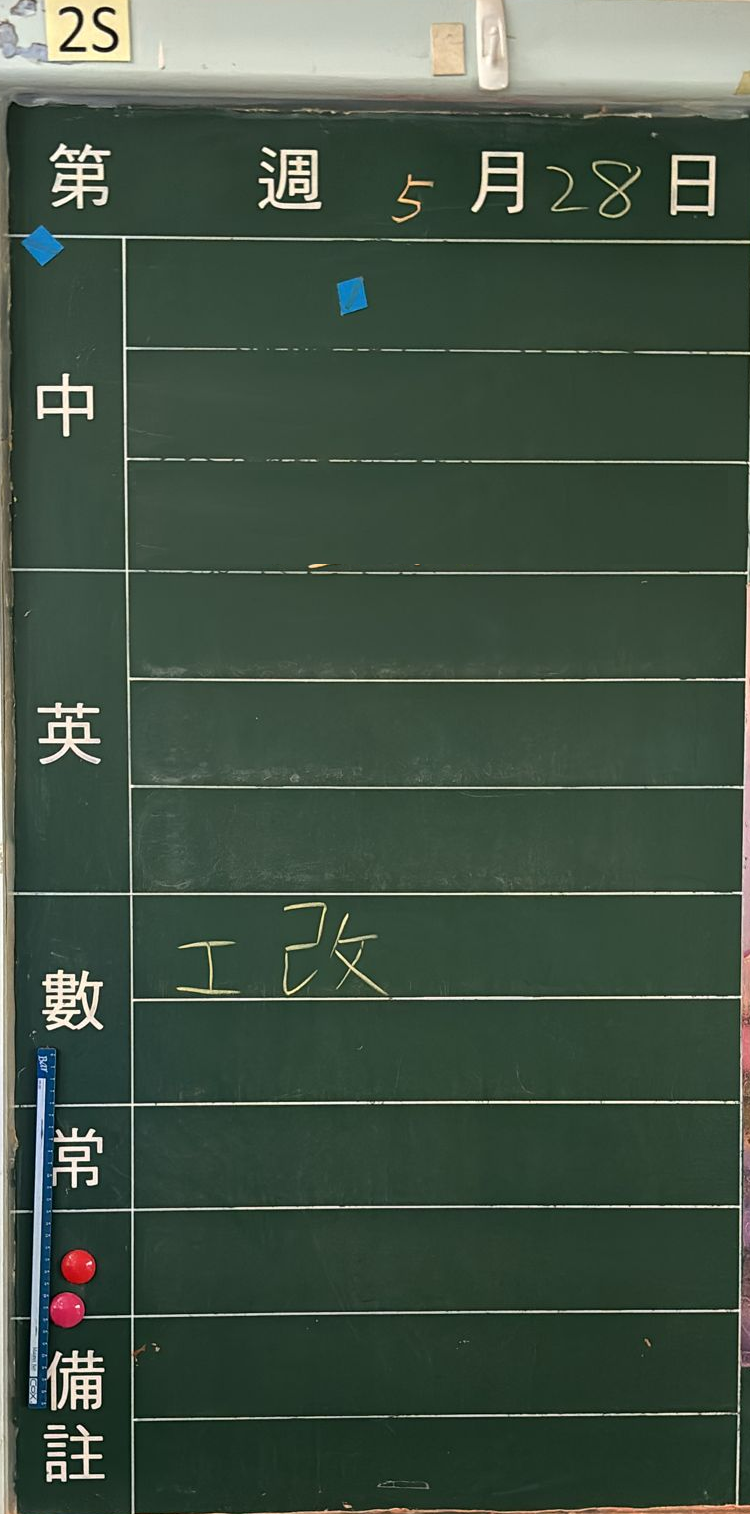 2S
第 週 5 月 28 日
中
英
數
工 改
常
備
註